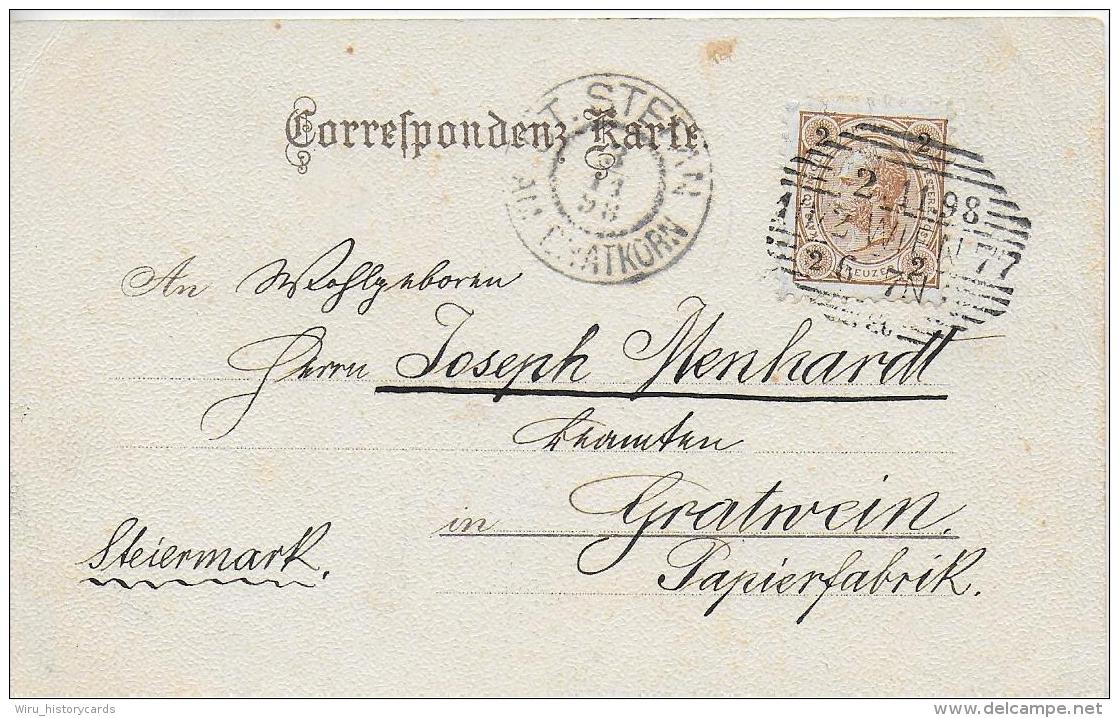 Correspondenz-Karte.
ST. STEFAN
98
AM GRATKORN
2 2
2 2
KREUZER
2 11.98
2 WIEN 77
6-7N
An Wohlgeboren
Herrn Joseph Menhardt
Beamten
in Gratwein.
Steiermark. Papierfabrik.
Wiru_historycards
www.delcampe.net